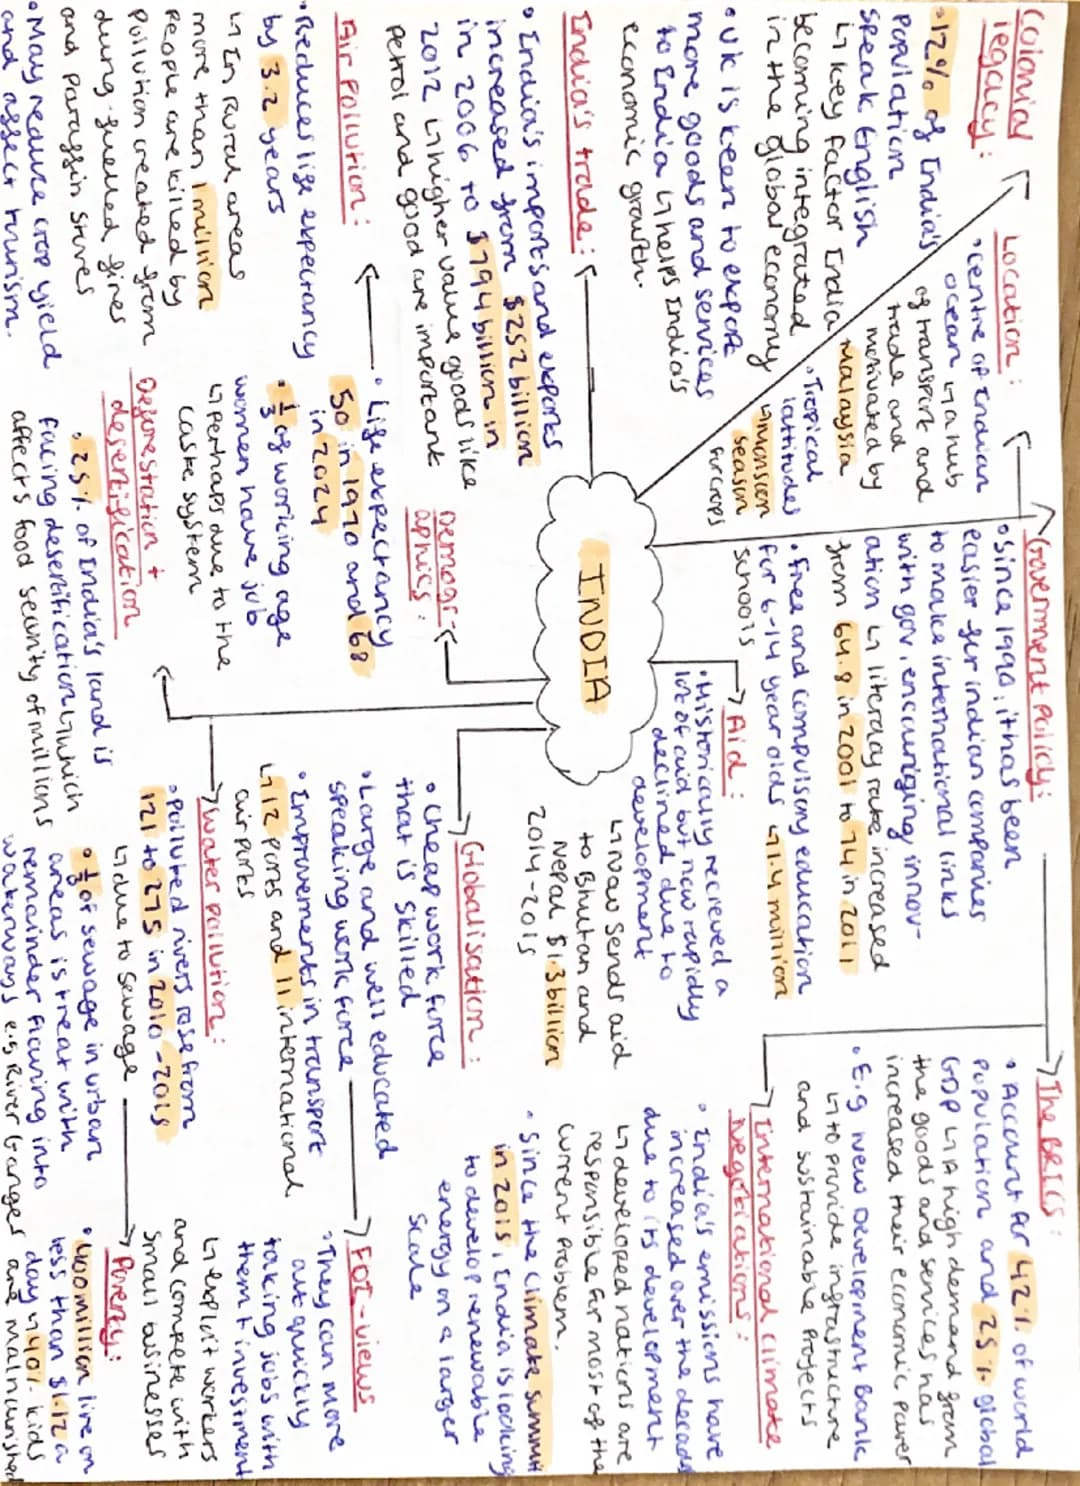 Colonial
legacy:
• 12% of India's
population
speak English
↳ key factor India
becoming integrated
in the global economy
Location:
• centre of Indian
ocean ↳ a hub
of transport and
trade and
motivated by
Malaysia
• Tropical
lattitudes
↳ monsoon
season
for crops
Government Policy:
• Since 1990, it has been
easier for indian companies
to make international links
with gov. encouriging innov-
ation ↳ literacy rate increased
from 64.8 in 2001 to 74 in 2011
• free and compulsory education
for 6-14 year olds ↳ 1.4 million
schools
The BRICs:
• Account for 42% of world
population and 25% global
GDP ↳ A high demand from
the goods and services has
increased their economic power
• E.g New Development Bank
↳ to provide infrastructure
and sustainable projects
India's trade:
• UK is keen to export
more goods and services
to India ↳ helps India's
economic growth.
• India's imports and exports
increased from $252 billion
in 2006 to $794 billion in
2012 ↳ higher value goods like
petrol and good are important
INDIA
Aid:
• Historically recieved a
lot of aid but now rapidly
declined due to
development
↳ Now sends aid
to Bhutan and
Nepal $1.3 billion
2014-2015
International climate
Negotiations:
• India's emissions have
increased over the decades
due to its development
↳ developed nations are
responsible for most of the
current problem.
• Since the climate summit
in 2015, India is looking
to develop renewable
energy on a larger
scale
Air pollution:
• Reduces life expectancy
by 3.2 years
↳ In rural areas
more than 1 million
people are killed by
pollution created from
dung-fuelled fires
and paraffin stoves
• May reduce crop yield
and affect tourism.
Demogr-
aphics:
• Life expectancy
50 in 1970 and 68
in 2024
• 1/3 of working age
women have job
↳ perhaps due to the
caste system
Globalisation:
• Cheap work force
that is skilled
• Large and well educated
speaking work force
• Improvements in transport
↳ 12 ports and 11 international
airports
FDI-views
• They can more
out quickly
taking jobs with
them + investment
↳ exploit workers
and compete with
small businesses
Deforestation +
desertification
• 25% of India's land is
facing desertification ↳ which
affects food security of millions
Water pollution:
• Polluted rivers rose from
121 to 275 in 2010-2015
↳ due to sewage
• 1/3 of sewage in urban
areas is treat with
remainder flowing into
waterways e.g River Ganges
Poverty:
• 400 million live on
less than $1.12 a
day ↳ 40% kids
are malnurished